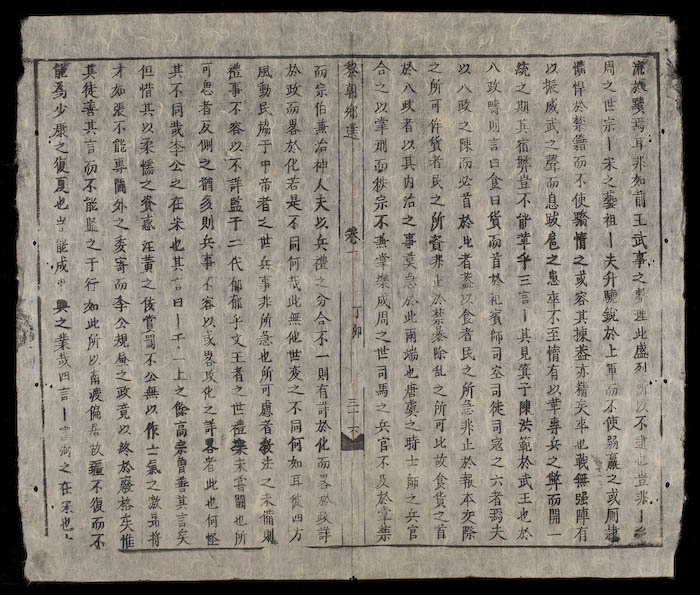 流於驕焉耳非如前王武事之整理此盛烈所以不建也豈非
周之世宗丨宋之藝祖丨夫升驍銳於上軍而不使弱羸之或厠隷
懦悍於禁籍而不使驕惰之或容其揀蒐亦精矣率也戰無强陣有
以振威武之聲而息跋扈之患卒不至惰有以革專兵之弊而開一
統之期其宿弊豈不能革乎三言丨其見箕子陳洪範於武王也於
八政時則言曰食曰貨而首於祀賓師司空司徒司寇之六者焉夫
以八政之陳而必首於此者蓋以食者民之所急非止於報本交際
之所可侔貨者民之所資非止於禁暴除乱之所可比故食貨之首
於八政者以其內治之事莫急於此兩端也唐虞之時士師之兵官
合之以掌刑而秩宗不兼掌樂成周之世司馬之兵官不及於掌禁
黎朝鄉選 卷 丁卯 三十六
而宗伯兼治神人夫以兵禮之分合不一則有詳於化而畧於政詳
於政而畧於化若是不同何哉此無他世变之不同何如耳彼四方
風動民雍于中帝者之世兵事非所急也所可慮者教法之未備則
禮事不容以不詳監于二代郁郁乎文王者之世禮樂未嘗闕也所
可患者反側之猶多則兵事不容以或畧政化之詳畧者此也何怪
其不同哉李公之在宋也其言曰丨干丨上之餘高宗曾善其言矣
但惜其以柔懦之資惑汪黃之侫賞罰不公無以作士氣之激昻將
才如張不能專閫外之委寄而李公規畫之政竟以終於廢格矣惟
其徒善其言而不能監之于行如此所以南渡偏安故疆不復而不
能爲少康之復夏也豈能成中興之業哉四言丨 之在宋也上